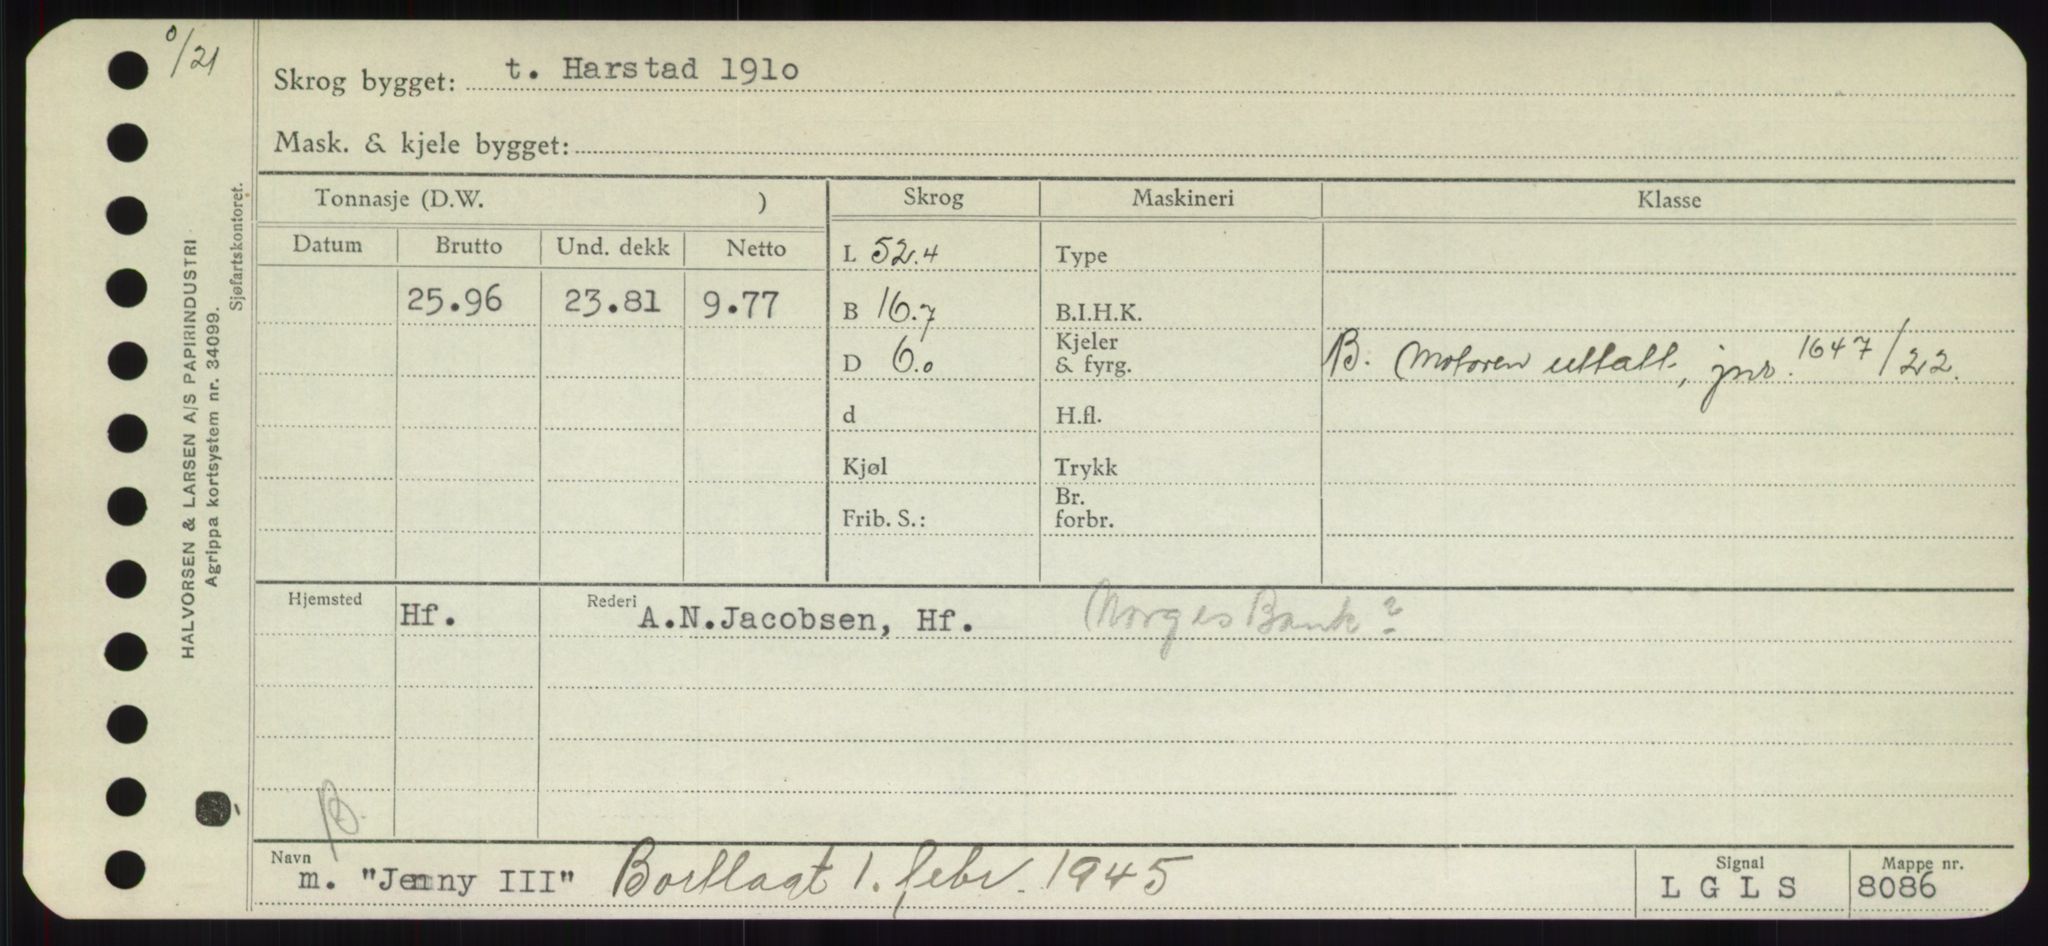 0/21
Skrog bygget: t. Harstad 191o
Mask. & kjele bygget:
Tonnasje (D.W. )
Skrog
Maskineri
Klasse
Datum
Brutto
Und. dekk
Netto
25.96
23.81
9.77
L 52.4
B 16.7
D 6.0
d
Kjøl
Frib. S.:
Type
B.I.H.K.
Kjeler
& fyrg.
H.fl.
Trykk
Br.
forbr.
B. Motoren uttatt, jnr. 1647/22.
Hjemsted
Hf.
Rederi
A.N.Jacobsen, Hf. Norges Bank?
B.
Navn
m. "Jenny III" Bortlagt 1. febr. 1945
Signal
L G L S
Mappe nr.
8086
HALVORSEN & LARSEN A/S PAPIRINDUSTRI
Agrippa kortsystem nr. 34099.
Sjøfartskontoret.